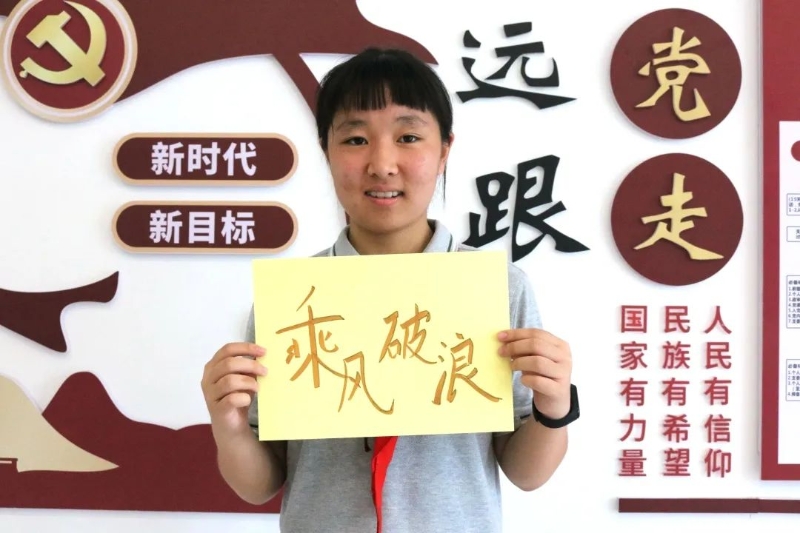 新时代
新目标
远
跟
党
走
乘风破浪
人民有信仰
民族有希望
国家有力量